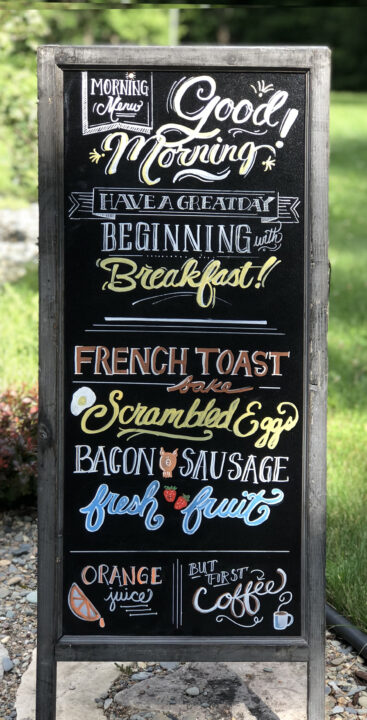 MORNING
Menu
Good
Morning!
HAVE A GREAT DAY
BEGINNING with
Breakfast!
FRENCH TOAST
bake
Scrambled Eggs
BACON SAUSAGE
fresh fruit
ORANGE
juice
BUT FIRST
Coffee